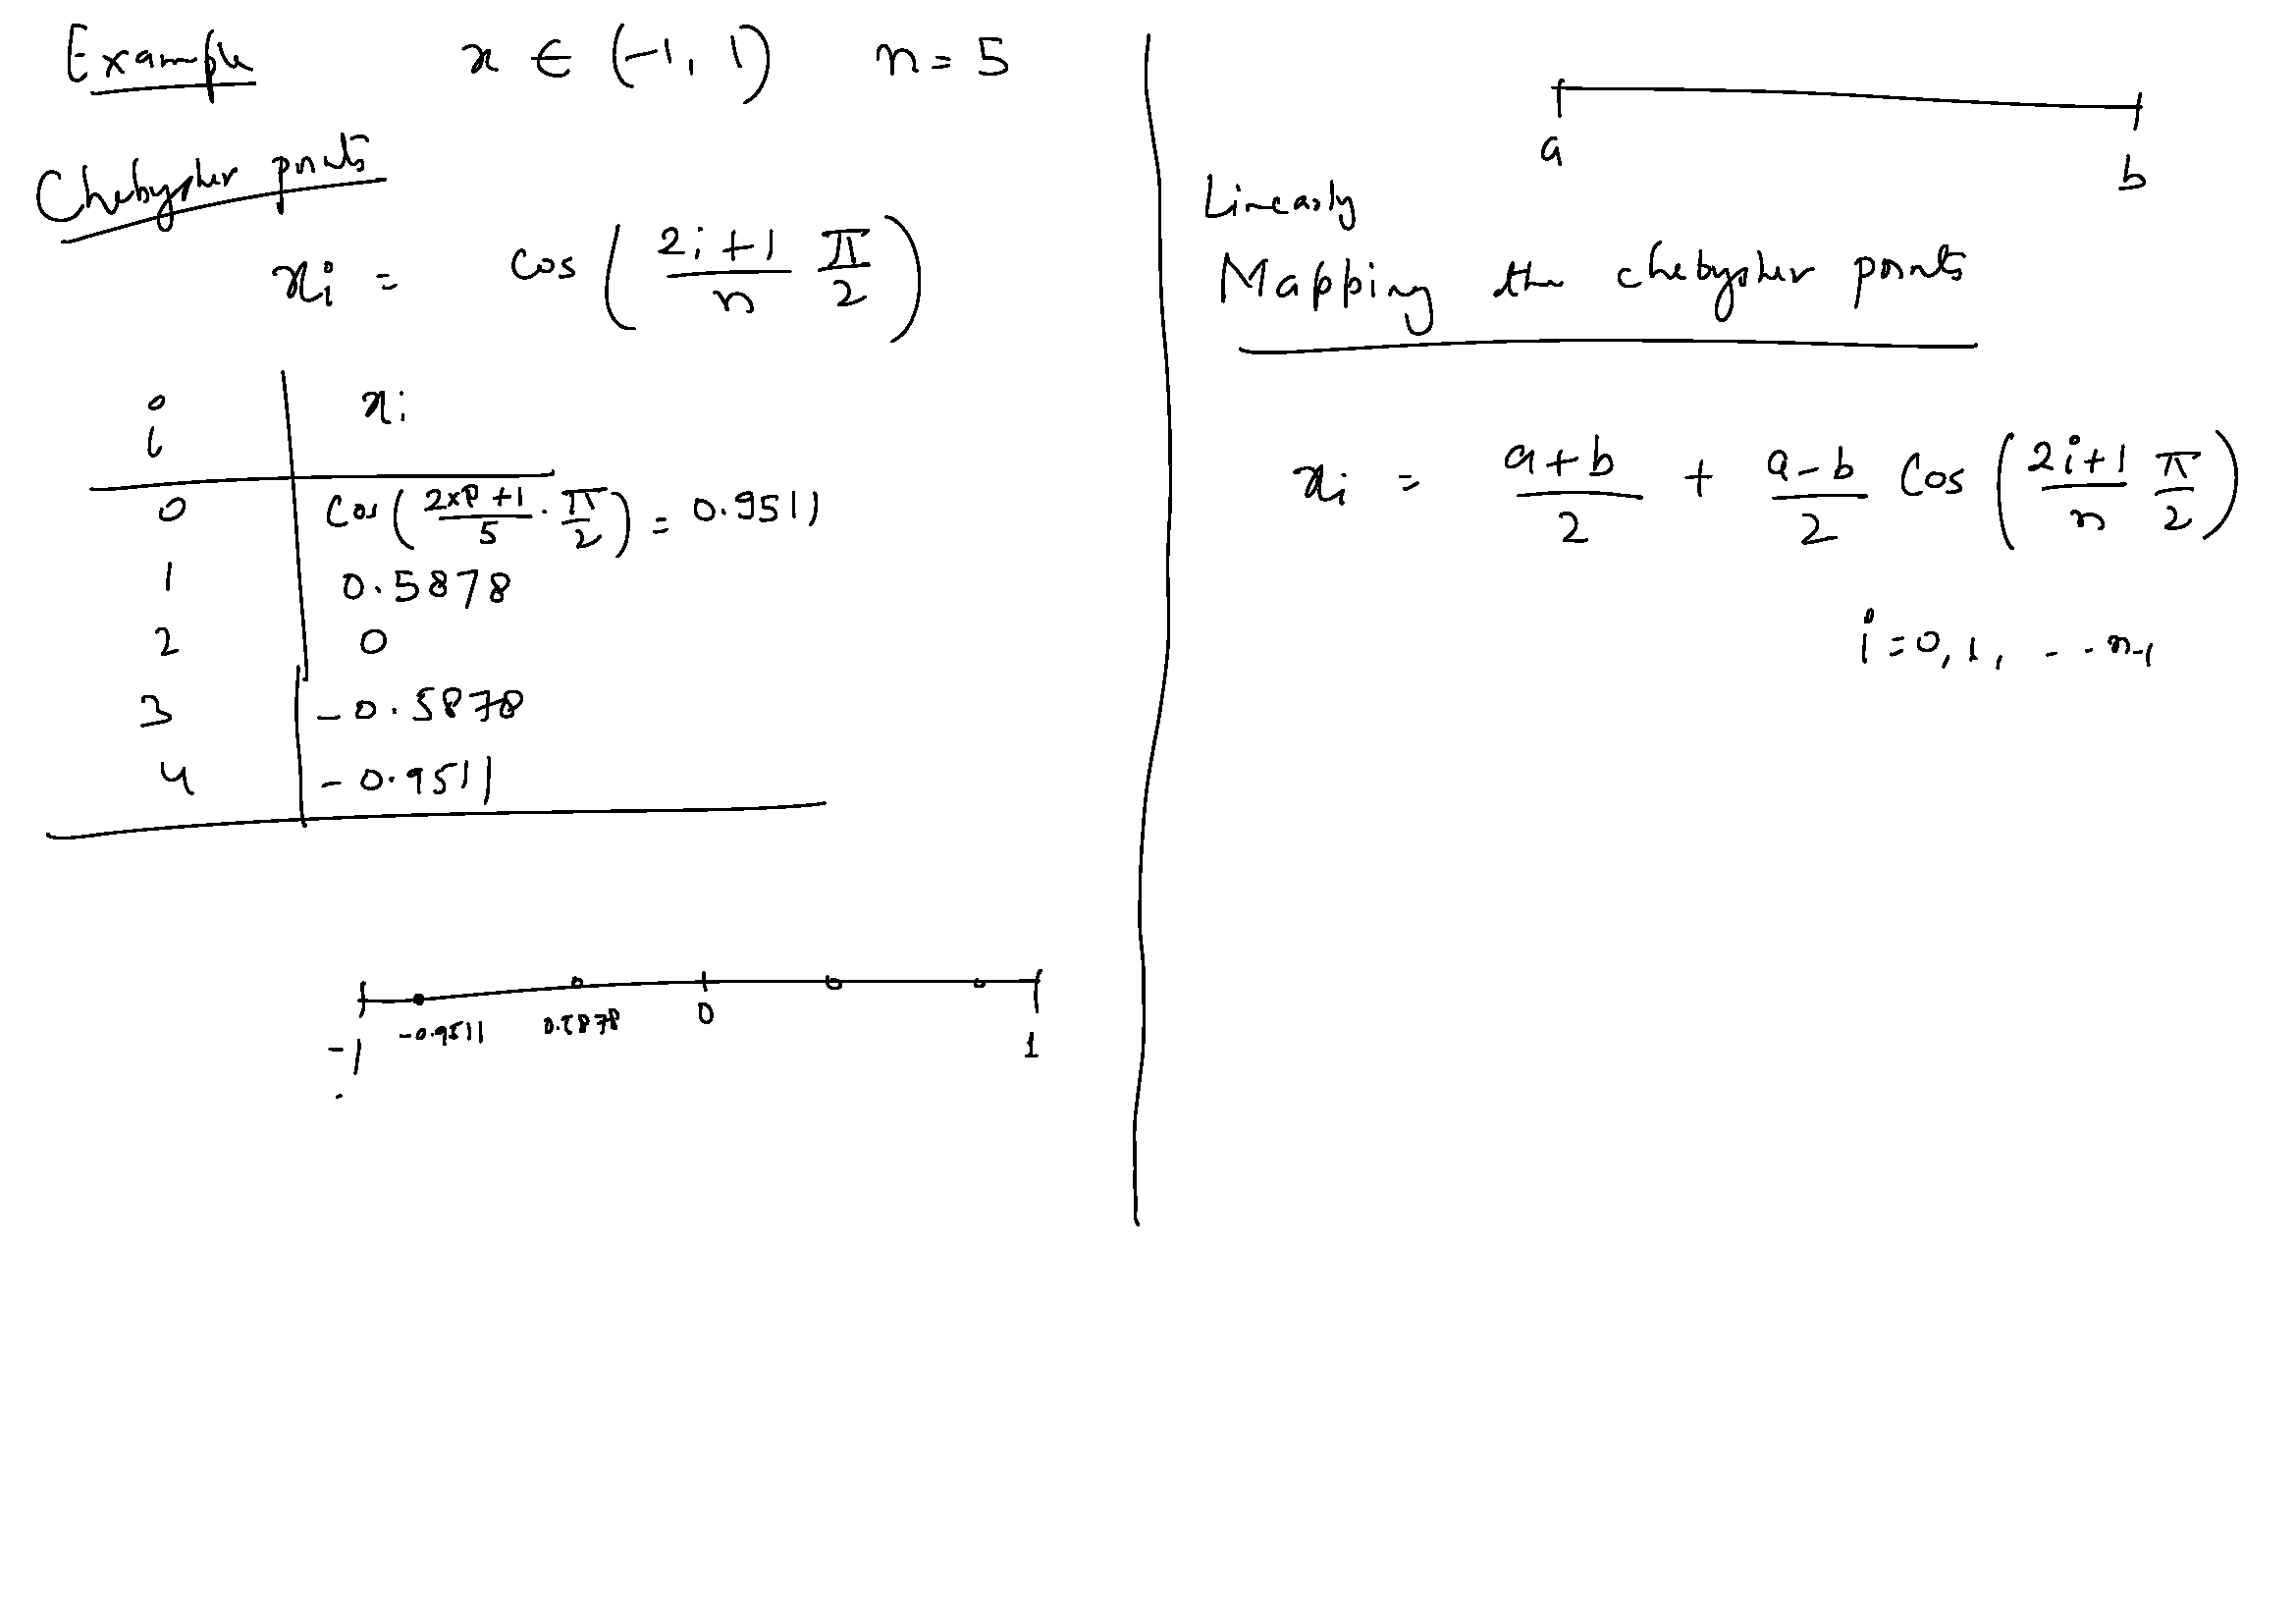 Example x ∈ (-1, 1) n = 5
Chebyshev points
x_i = cos ( (2i+1)/n π/2 )
i x_i
0 Cos ( (2x0+1)/5 · π/2 ) = 0.9511
1 0.5878
2 0
3 -0.5878
4 -0.9511
-1 -0.9511 0.5878 0 1
a b
Linearly
Mapping the chebyshev points
x_i = (a+b)/2 + (a-b)/2 Cos ( (2i+1)/n π/2 )
i = 0, 1, -- n-1